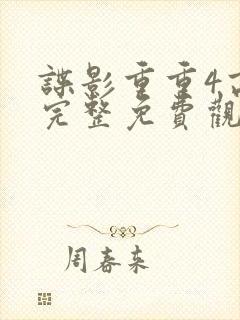 諜影重重4高
完整免費觀
周春来